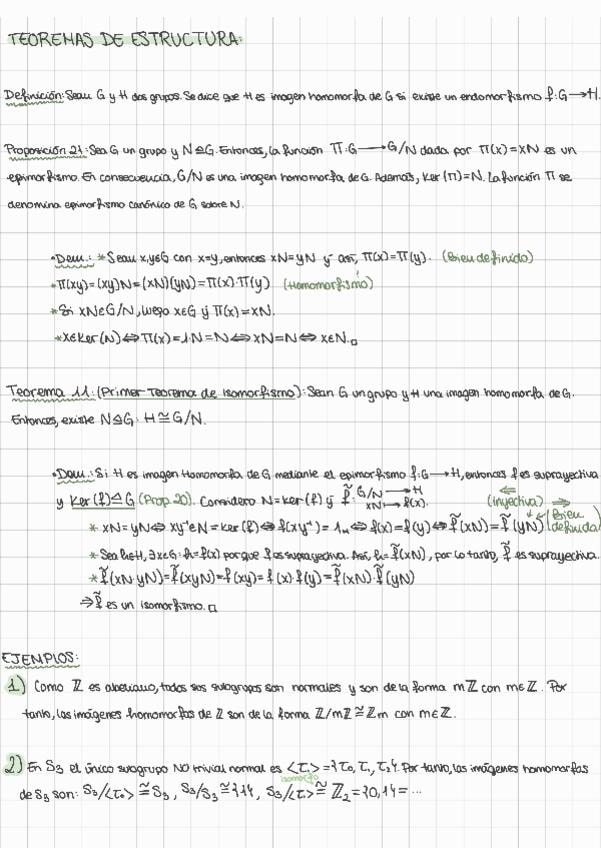 TEOREMAS DE ESTRUCTURA:
Definición: Sean G y H dos grupos. Se dice que H es imagen homomorfa de G si existe un endomorfismo f: G → H.
Proposición 21: Sea G un grupo y N ⊴ G. Entonces, la función Π: G → G/N dada por Π(x) = xN es un
epimorfismo. En consecuencia, G/N es una imagen homomorfa de G. Además, Ker(Π) = N. La función Π se
denomina epimorfismo canónico de G sobre N.
• Dem.: * Sean x,y∈G con x=y, entonces xN = yN y así, Π(x) = Π(y). (Bien definido)
* Π(xy) = (xy)N = (xN)(yN) = Π(x)·Π(y) (Homomorfismo)
* Si xN∈G/N, luego x∈G y Π(x) = xN.
* x∈Ker(N) ⇔ Π(x) = 1·N = N ⇔ xN = N ⇔ x∈N. □
Teorema 11: (Primer Teorema de Isomorfismo): Sean G un grupo y H una imagen homomorfa de G.
Entonces, existe N ⊴ G : H ≅ G/N.
• Dem.: Si H es imagen Homomorfa de G mediante el epimorfismo f: G → H, entonces f es suprayectiva
y Ker(f) ⊴ G (Prop 20). Considero N = Ker(f) y f̃: G/N → H
xN ↦ f(x).
⇐ (inyectiva) ⇒ (Bien definida)
* xN = yN ⇔ xy⁻¹∈N = Ker(f) ⇔ f(xy⁻¹) = 1_H ⇔ f(x) = f(y) ⇔ f̃(xN) = f̃(yN)
* Sea h∈H, ∃x∈G : h = f(x) porque f es suprayectiva. Así, h = f̃(xN), por lo tanto, f̃ es suprayectiva.
* f̃(xN·yN) = f̃(xyN) = f(xy) = f(x)·f(y) = f̃(xN)·f̃(yN)
⇒ f̃ es un isomorfismo. □
EJEMPLOS:
1) Como ℤ es abeliano, todos sus subgrupos son normales y son de la forma mℤ con m∈ℤ. Por
tanto, las imágenes homomorfas de ℤ son de la forma ℤ/mℤ ≅ ℤm con m∈ℤ.
2) En S₃ el único subgrupo NO trivial normal es ⟨τ₁⟩ = {τ₀, τ₁, τ₂}. Por tanto, las imágenes homomorfas
isomorfo
de S₃ son: S₃/⟨τ₀⟩ ≅ S₃, S₃/S₃ ≅ {1}, S₃/⟨τ₁⟩ ≅ ℤ₂ = {0,1} = ...